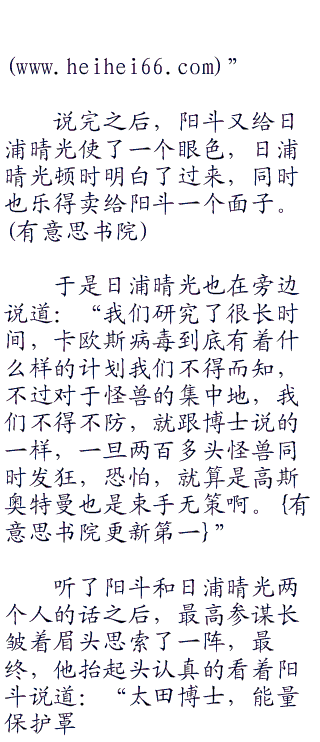 (www.heihei66.com)”
说完之后，阳斗又给日
浦晴光使了一个眼色，日浦
晴光顿时明白了过来，同时
也乐得卖给阳斗一个面子。
(有意思书院)
于是日浦晴光也在旁边
说道：“我们研究了很长时
间，卡欧斯病毒到底有着什
么样的计划我们不得而知，
不过对于怪兽的集中地，我
们不得不防，就跟博士说的
一样，一旦两百多头怪兽同
时发狂，恐怕，就算是高斯
奥特曼也是束手无策啊。{有
意思书院更新第一}”
听了阳斗和日浦晴光两
个人的话之后，最高参谋长
皱着眉头思索了一阵，最
终，他抬起头认真的看着阳
斗说道：“太田博士，能量
保护罩